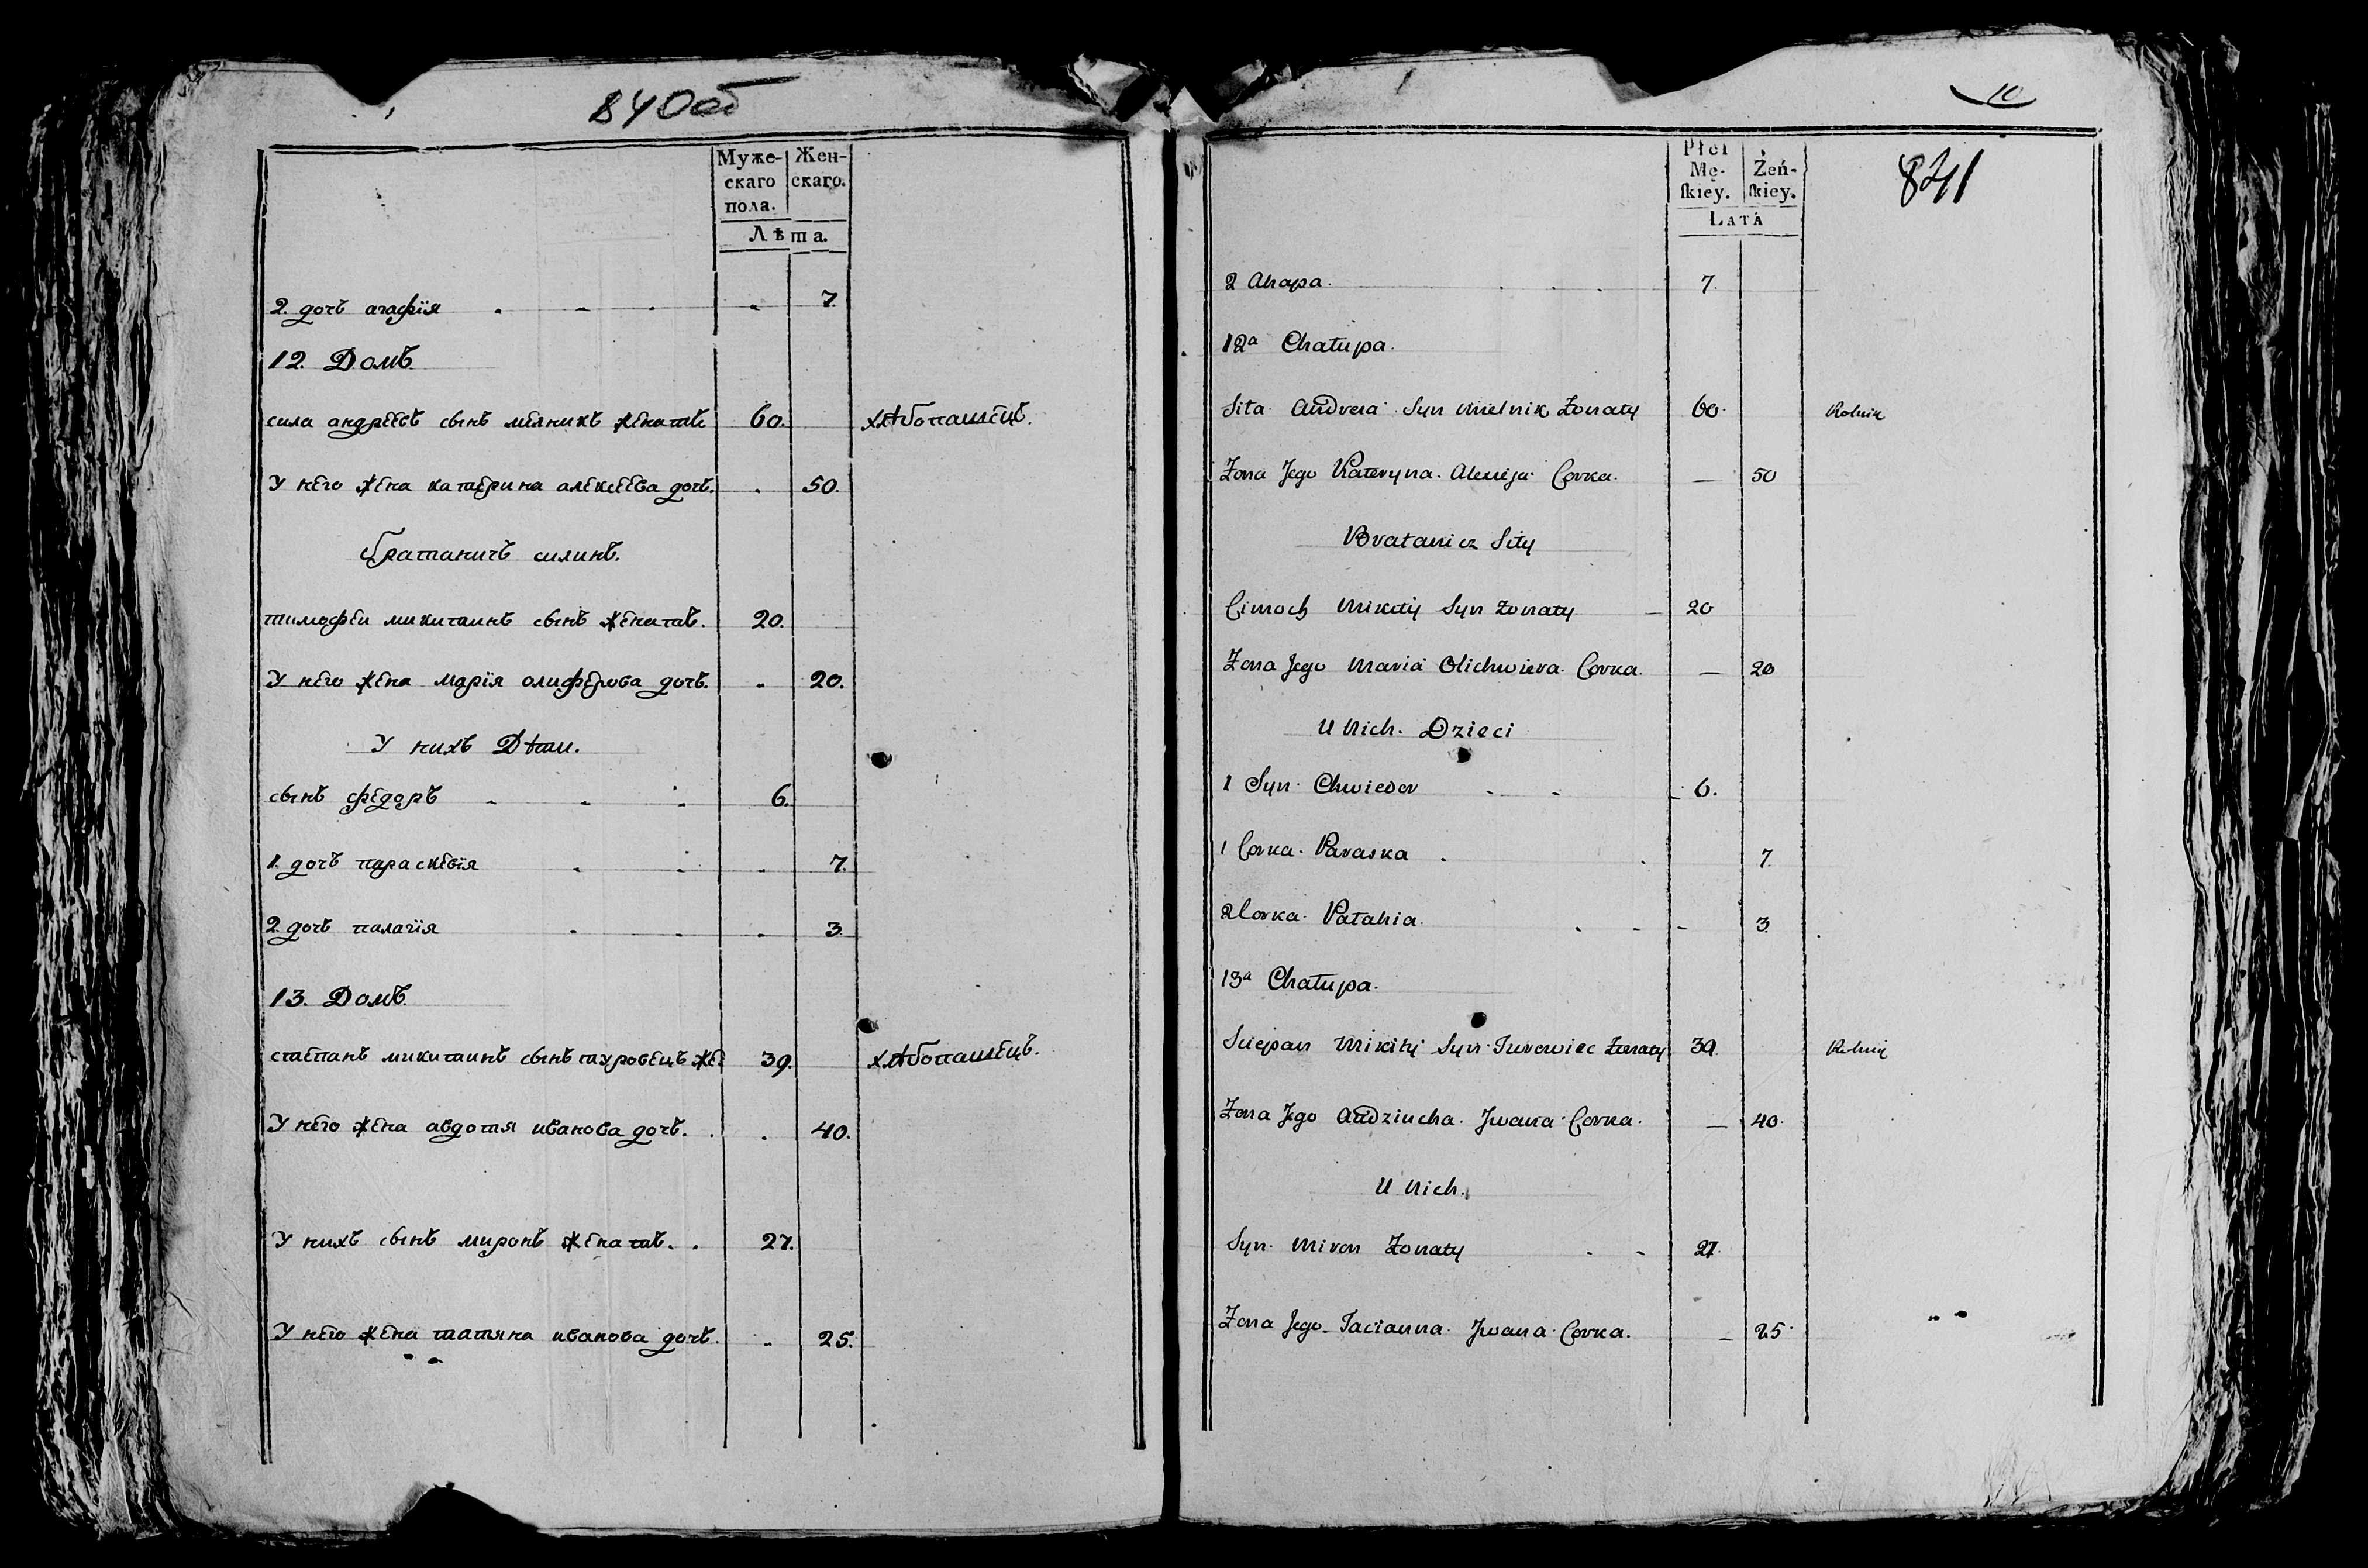 840об
Муже- Жен-
скаго скаго.
пола.
Лѣта.
2. дочъ агафїя 7.
12. Домъ
сила андрѣевъ сынъ мелникъ женатъ 60. хлѣбопашецъ.
У него жена катерина алексеева дочъ. 50.
братаничъ силинъ.
тимофеи микитинъ сынъ женатъ. 20.
У него жена марїя олиферова дочъ. 20.
У нихъ Дѣти.
сынъ федоръ 6.
1. дочъ параскевїя 7.
2. дочъ палагїя 3
13. Домъ
степанъ микитинъ сынъ туровецъ же 39. хлѣбопашецъ.
У него жена авдотя иванова дочъ. 40.
У нихъ сынъ миронъ женатъ. 27.
У него жена татяна иванова дочъ. 25.
10
841
Płci
Mę- Żeń-
skiey. skiey.
LATA
2 Ahapa. 7.
12a Chałupa.
Siła Andreia Syn Mielnik Żonaty 60. Rolnik
Żona Jego Kateryna Alexieja Corka. 50
Bratanicz Siły
Cimoch Mikity Syn Żonaty 20
Żona Jego Maria Olichwiera Corka. 20
U Nich Dzieci
1 Syn Chwiedor 6.
1 Corka Paraska 7.
2 Corka Pałahia 3
13a Chałupa.
Sciepan Mikity Syn Turowiec Żonaty 39. Rolnik
Żona Jego Audziucha Jwana Corka. 40.
U Nich.
Syn Miron Żonaty 27.
Żona Jego Tacianna Jwana Corka. 25